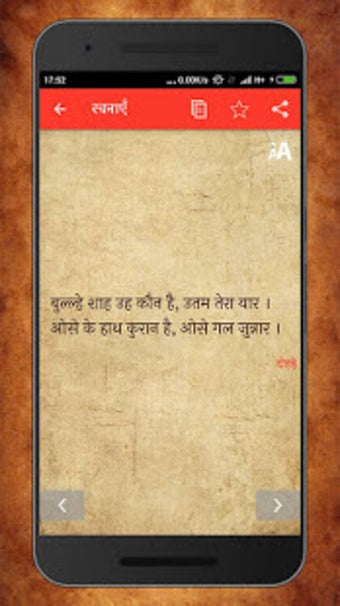 17:52 ... 0.00K/s H+
रचनाएँ
AA
बुल्ल्हे शाह उह कौन है, उतम तेरा यार ।
ओसे के हाथ कुरान है, ओसे गल जुन्नार ।
दोहड़े